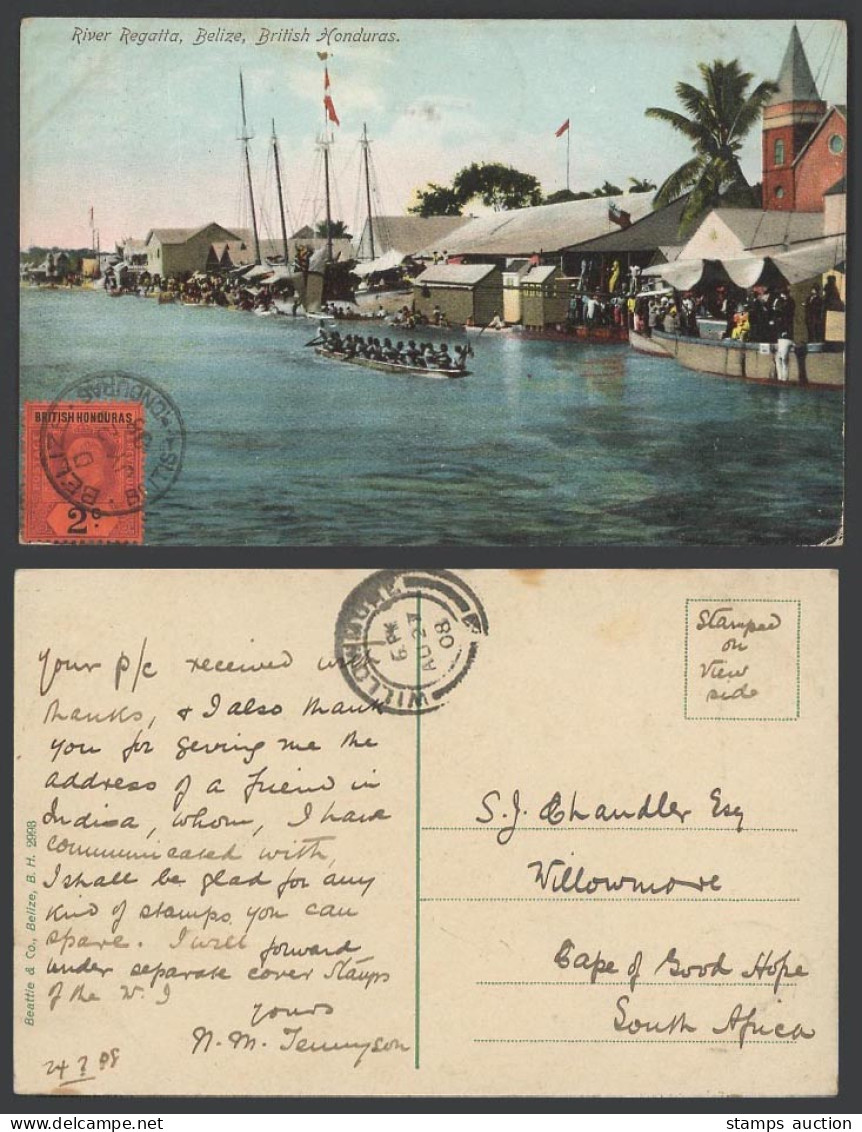 River Regatta, Belize, British Honduras.
BRITISH HONDURAS
2c
BELIZE
Your p/c received with
thanks, & I also thank
you for geving me the
address of a friend in
Indiea, whom, I have
communicated with,
I shall be glad for any
kind of stamps you can
spare. I will forward
under separate cover Stamps
of the W. I
Yours
N. M. Tennyson
24 7 08
Beattie & Co., Belize, B. H. 2993
WILLOWMORE
6 PM
AU 27
08
Stamped
on
View
side
S. J. Chandler Esq
Willowmore
Cape of Good Hope
South Africa
stamps auction